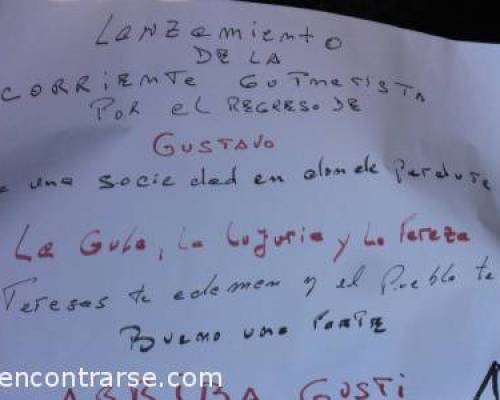 Lanzamiento
DE LA
CORRIENTE
POR EL REGRESO DE
GUSTAVO
una sociedad en donde Perdure
La Gula, La Lujuria y La Pereza
Teresas te y el Pueblo te
Bueno una PARTE
ARRIBA GUSTI
encontrarse.com